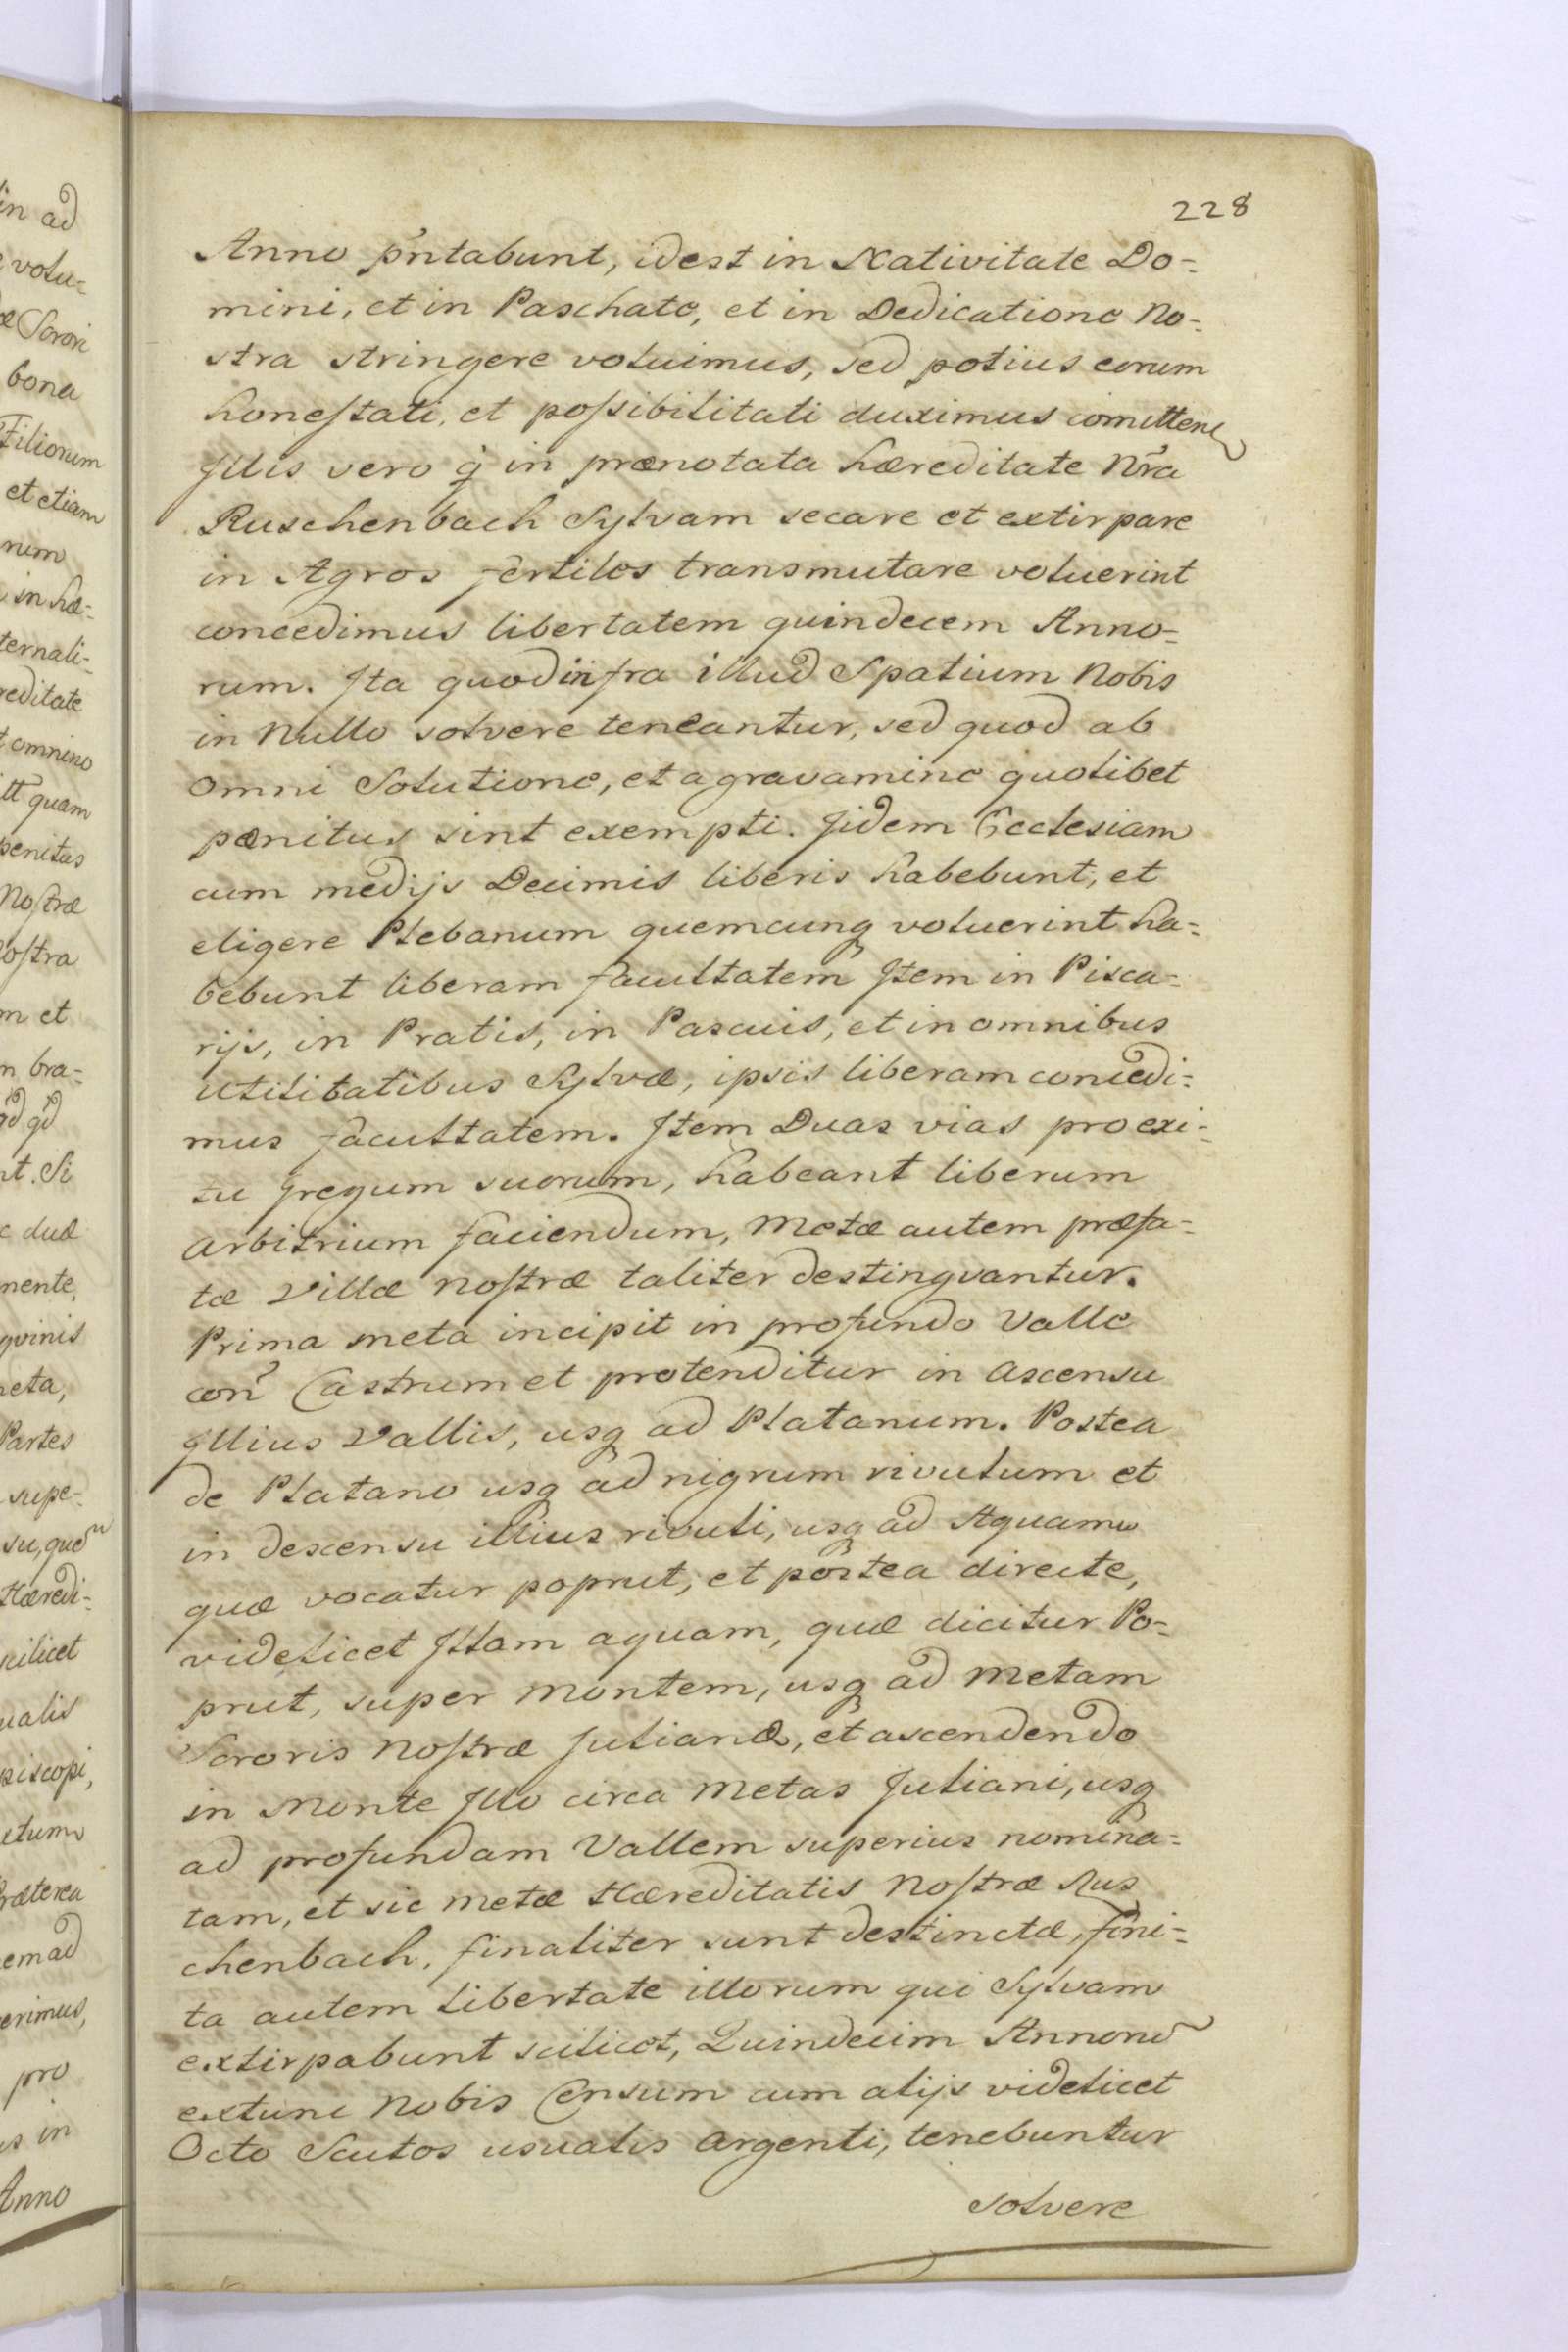 228
Anno pñtabunt, idest in Nativitate Do-
mini, et in Paschate, et in Dedicatione No-
stra stringere voluimus, sed potius eorum
honestati, et possibilitati duximus comitten
Illis vero q in prænotata hæreditate Nra
Ruschenbach Sylvam secare et extirpare
in Agros fertiles transmutare voluerint
concedimus libertatem quindecem Anno-
rum. Ita quod infra illud Spatium Nobis
in Nullo solvere teneantur, sed quod ab
omni Solutione, et agravamine quolibet
pænitus sint exempti. Iidem Ecclesiam
cum medijs Decimis liberis habebunt, et
eligere Plebanum quemcunq voluerint ha-
bebunt liberam facultatem Item in Pisca-
rijs, in Pratis, in Pascuis, et in omnibus
utilitatibus Sylvæ, ipsis liberam concedi-
mus facultatem. Item Duas vias pro exi-
tu gregum suorum, habeant liberum
arbitrium faciendum, Metæ autem præfa-
tæ Villæ nostræ taliter destingvantur.
Prima meta incipit in profundo Valle
con Castrum et protenditur in ascensu
Illius Vallis, usq ad Platanum. Postea
de Platano usq ad nigrum rivulum et
in descensu illius rivuli, usq ad Aquam
quæ vocatur poprut, et postea directe,
videlicet Illam aquam, quæ dicitur Po-
prut, super montem, usq ad Metam
Sororis nostræ Julianæ, et ascendendo
in Monte Illo circa Metas Juliani, usq
ad profundam Vallem superius nomina-
tam, et sic metæ Hæreditatis Nostræ Rus
chenbach, finaliter sunt destinctæ, fini-
ta autem Libertate illorum qui Sylvam
extirpabunt scilicet, Quindecim Annorū
extunc Nobis Censum cum alijs videlicet
Octo Scutos usualis argenti, tenebuntur
solvere
in ad
volu-
Sorori
bona
Filiorum
et etiam
rum
in hæ-
ternali-
reditate
omnino
quam
penitus
Nostræ
ostra
m et
bra-
nt. Si
duæ
mente,
qvinis
eta,
Partes
supe-
su, quod
Hæredi-
cilicet
ualis
piscopi,
etum
præterea
em ad
erimus,
pro
is in
Anno